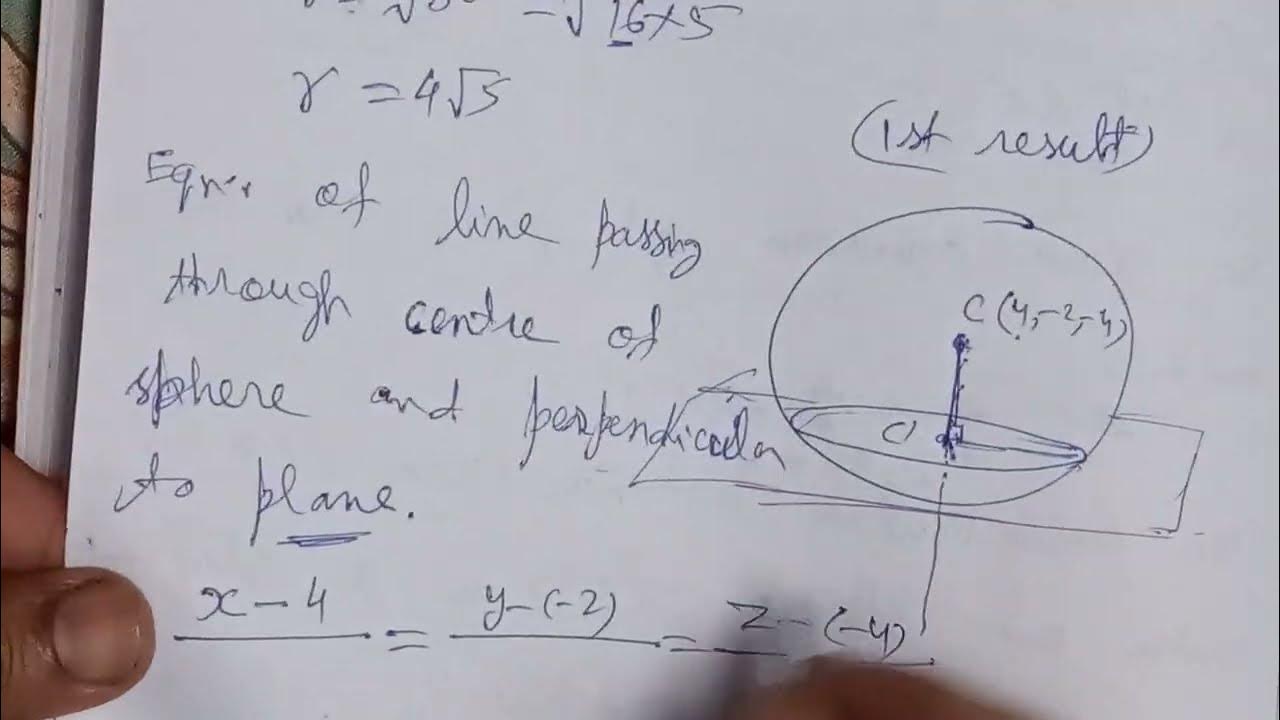 - √16×5
r = 4√5
(1st result)
Eqn. of line passing
through centre of
sphere and perpendicular
to plane.
C (4,-2,-4)
C'
x-4 = y-(-2) = z-(-4)